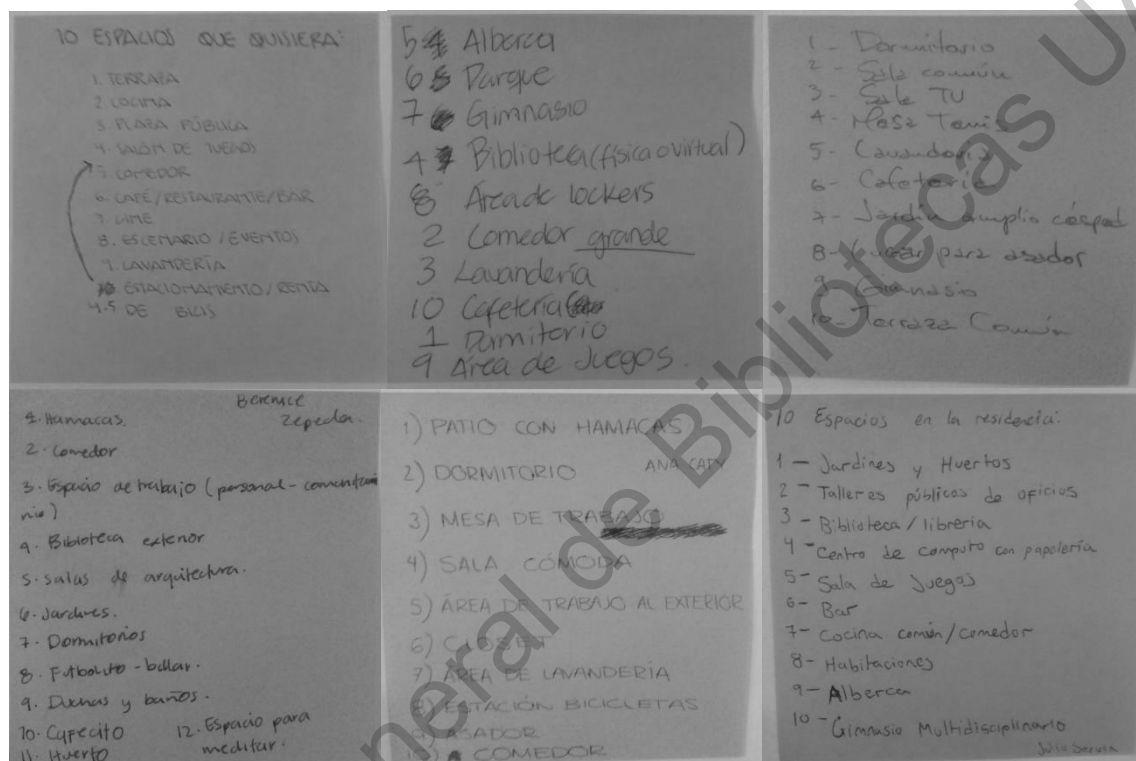 10 ESPACIOS QUE QUISIERA:
1. TERRAZA
2. COCINA
3. PLAZA PÚBLICA
4. SALÓN DE JUEGOS
5. COMEDOR
6. CAFÉ/RESTAURANTE/BAR
7. CINE
8. ESCENARIO/EVENTOS
9. LAVANDERÍA
10 ESTACIONAMIENTO/RENTA
4.5 DE BICIS
5 Alberca
6 Parque
7 Gimnasio
4 Biblioteca (física o virtual)
8 Area de lockers
2 Comedor grande
3 Lavandería
10 Cafetería
1 Dormitorio
9 Área de Juegos.
1 - Dormitorio
2 - Sala común
3 - Sala TV
4 - Mesa Tenis
5 - Lavandería
6 - Cafetería
7 - Jardín amplio césped
8 - Lugar para asador
9 - Gimnasio
10 - Terraza Común
Berenice
Zepeda.
1. Hamacas.
2. Comedor
3. Espacio de trabajo (personal - comunitario)
4. Biblioteca exterior
5. salas de arquitectura.
6. Jardines.
7. Dormitorios
8. Futbolito - billar.
9. Duchas y baños.
10. Cafecito
11. Huerto
12. Espacio para
meditar.
1) PATIO CON HAMACAS
2) DORMITORIO
ANA CATY
3) MESA DE TRABAJO
4) SALA CÓMODA
5) ÁREA DE TRABAJO AL EXTERIOR
6) CLOSET
7) ÁREA DE LAVANDERÍA
8) ESTACIÓN BICICLETAS
9) ASADOR
10) COMEDOR
10 Espacios en la residencia:
1 - Jardines y Huertos
2 - Talleres públicos de oficios
3 - Biblioteca / librería
4 - Centro de computo con papelería
5 - Sala de Juegos
6 - Bar
7 - Cocina común/comedor
8 - Habitaciones
9 - Alberca
10 - Gimnasio Multidisciplinario
Julio Servín
neral de Bibliotecas UA